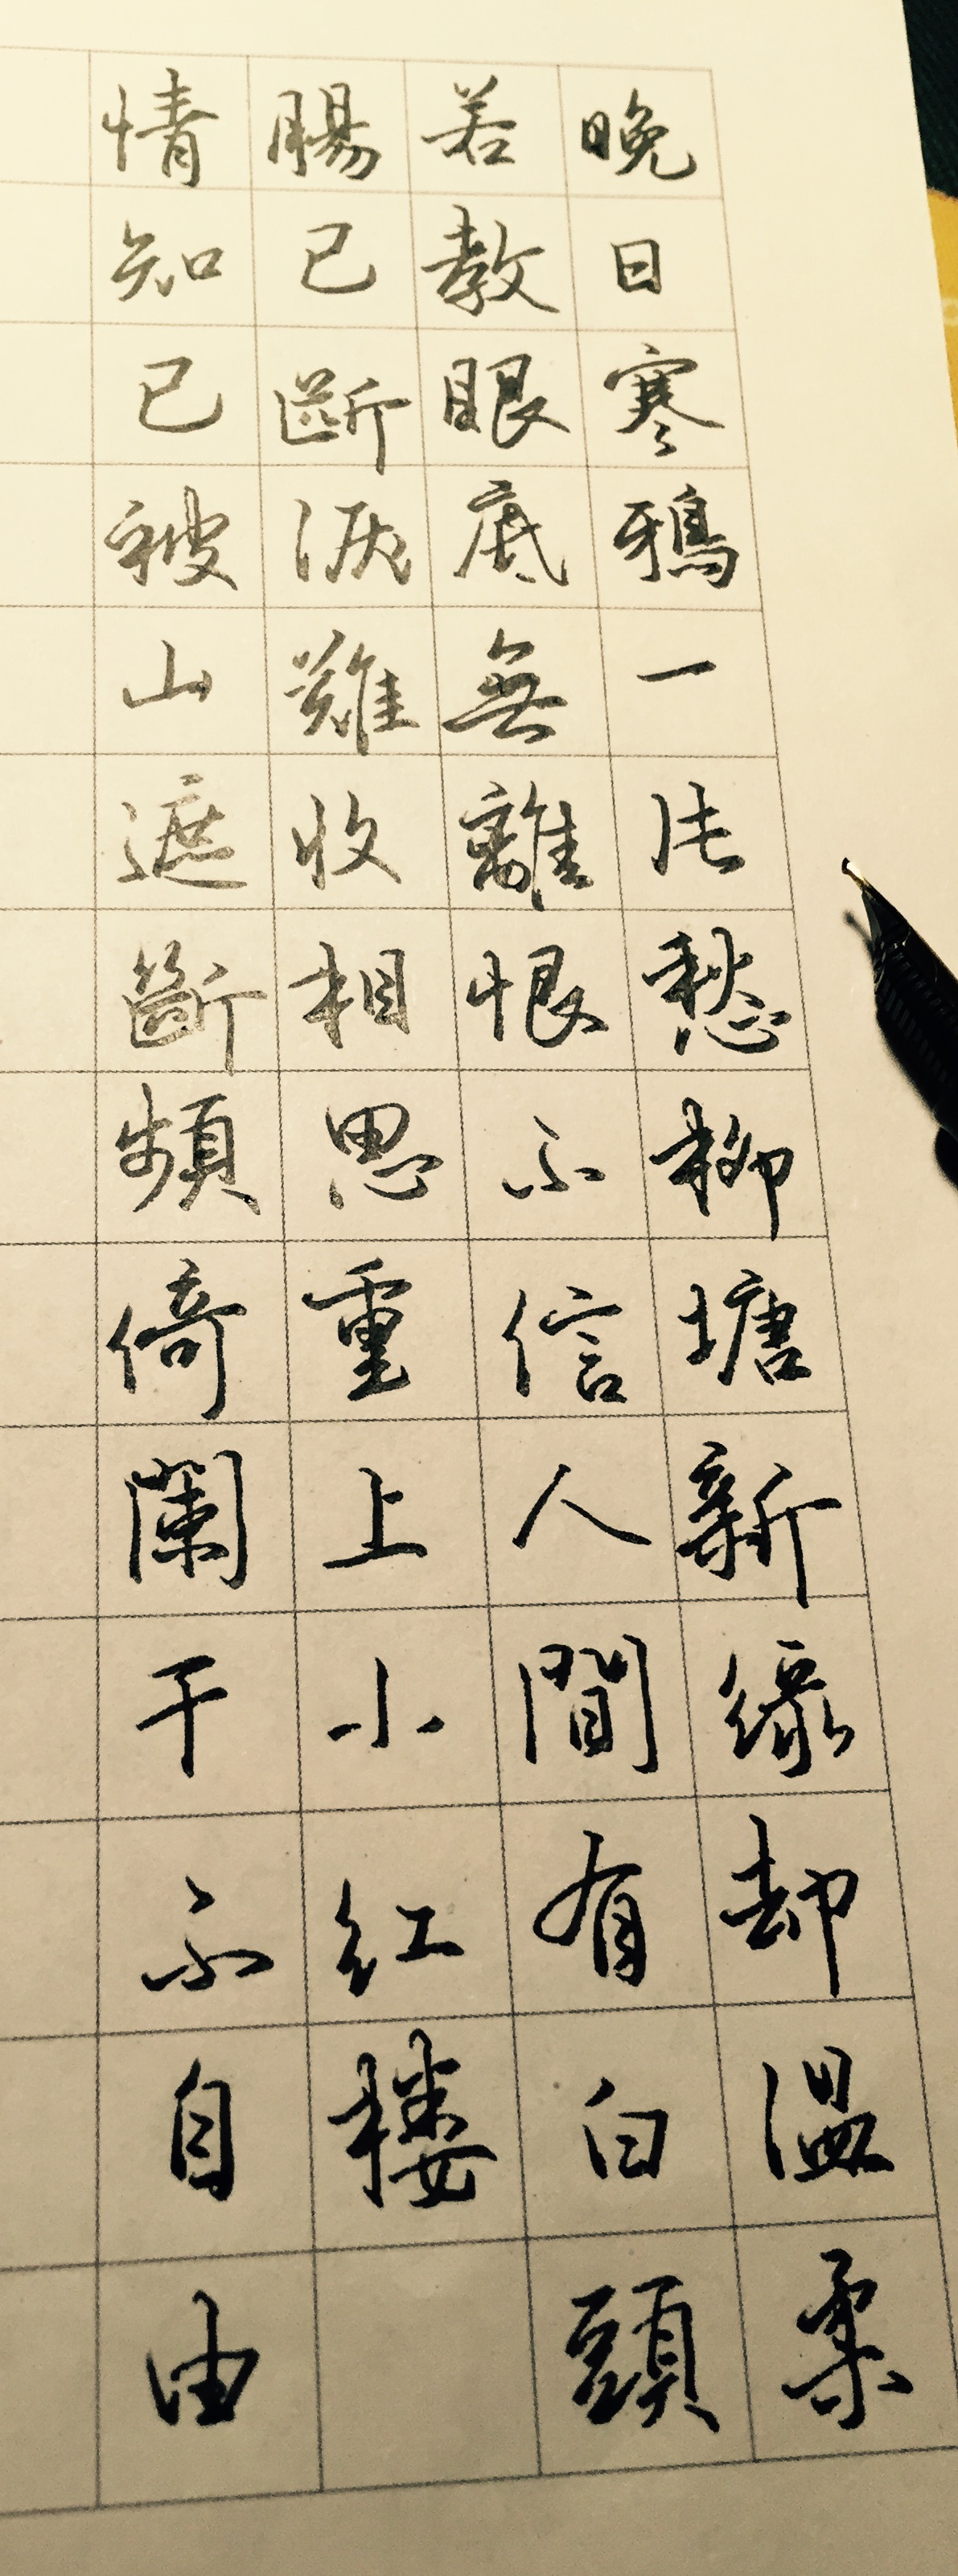 晚日寒鴉一片愁柳塘新緑却温柔
若教眼底無離恨不信人間有白頭
腸已斷淚難收相思重上小紅樓
情知已被山遮斷頻倚闌干不自由